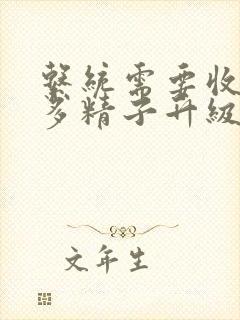 繫統需要收
多精子升級
文年生